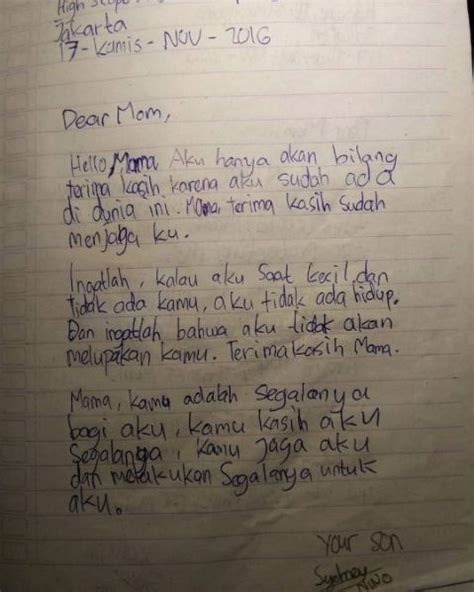 High Scope
Jakarta
17-Kamis-NOV-2016
Dear Mom,
Hello, Mama Aku hanya akan bilang
terima kasih karena aku sudah ada
di dunia ini. Mama, terima kasih sudah
menjaga ku.
Ingatlah, kalau aku saat kecil, dan
tidak ada kamu, aku tidak ada hidup.
Dan ingatlah, bahwa aku tidak akan
melupakan kamu. Terima kasih Mama.
Mama, kamu adalah segalanya
bagi aku, kamu kasih aku
Segalanya, kamu jaga aku
dan melakukan Segalanya untuk
aku.
Your son
Sydney
NINO